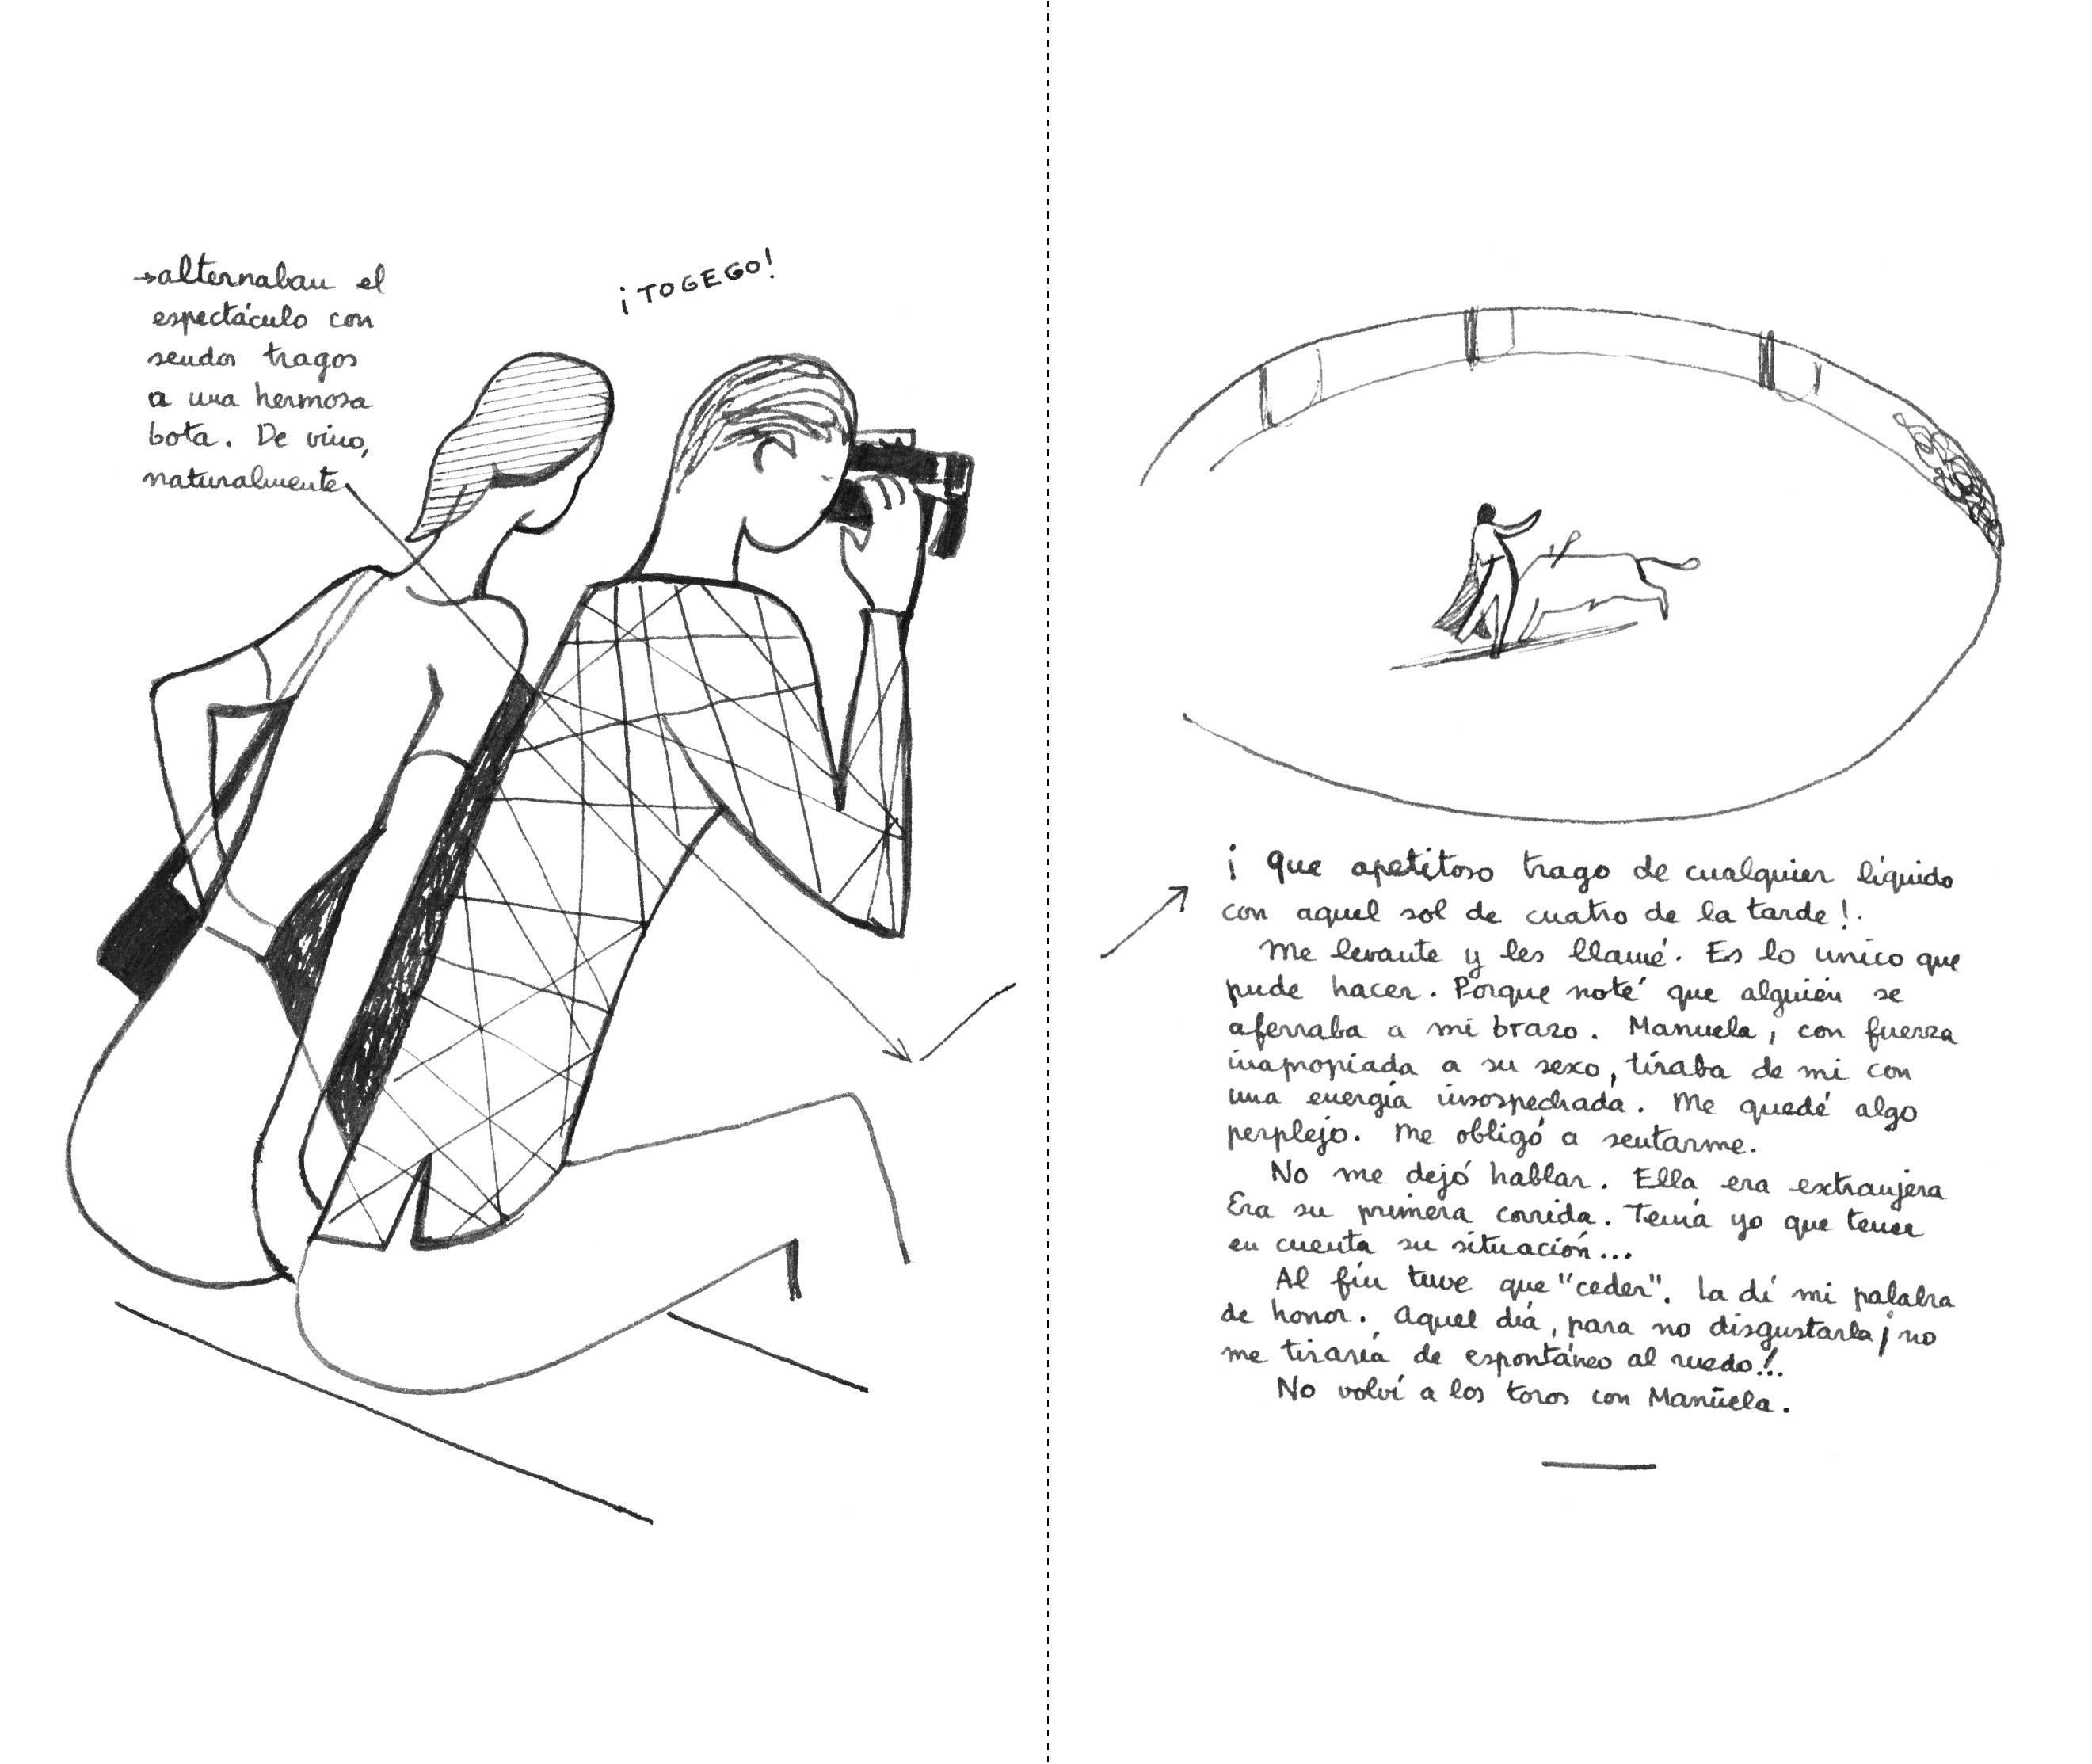 →alternaban el
espectáculo con
sendos tragos
a una hermosa
bota. De vino,
naturalmente
¡TOGEGO!
¡ Que apetitoso trago de cualquier líquido
con aquel sol de cuatro de la tarde!.
Me levante y les llamé. Es lo unico que
pude hacer. Porque noté que alguien se
aferraba a mi brazo. Manuela, con fuerza
inapropiada a su sexo, tiraba de mi con
una energía insospechada. Me quedé algo
perplejo. Me obligó a sentarme.
No me dejó hablar. Ella era extranjera
Era su primera corrida. Tenía yo que tener
en cuenta su situación...
Al fin tuve que "ceder". La dí mi palabra
de honor. Aquel día, para no disgustarla ¡no
me tiraría de espontáneo al ruedo!.
No volví a los toros con Manuela.